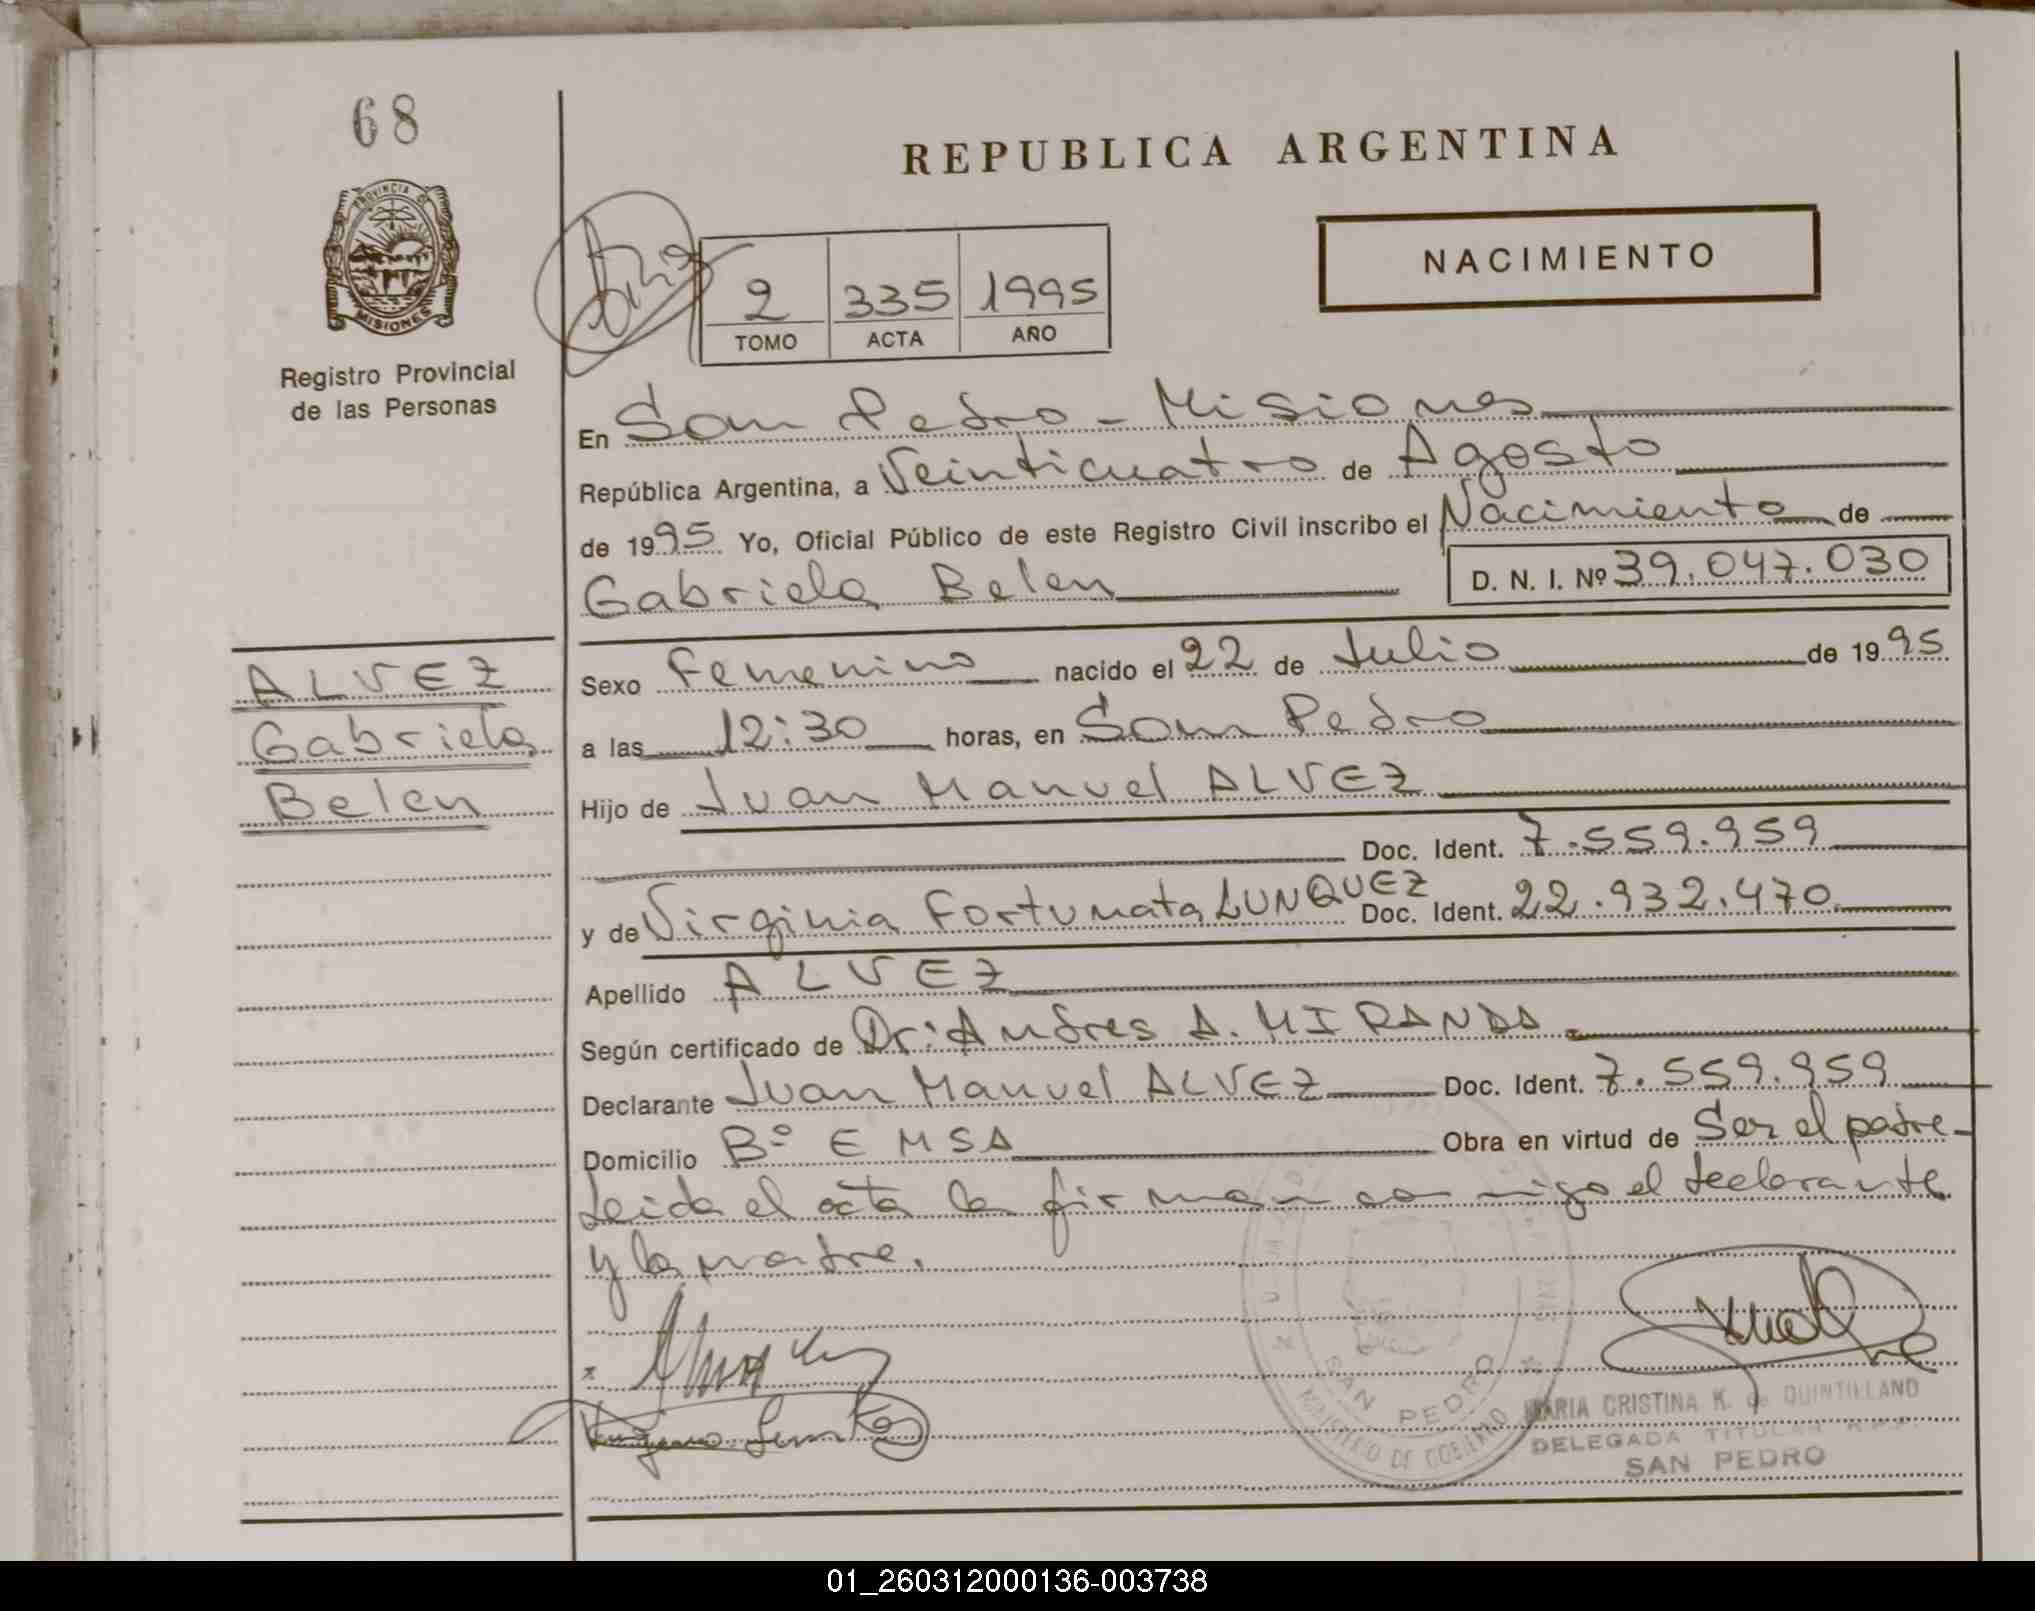 68
PROVINCIA DE
MISIONES
Registro Provincial
de las Personas
REPUBLICA ARGENTINA
NACIMIENTO
2 335 1995
TOMO ACTA AÑO
En San Pedro - Misiones
República Argentina, a Veinticuatro de Agosto
de 1995 Yo, Oficial Público de este Registro Civil inscribo el Nacimiento de
Gabriela Belen D. N. I. Nº 39.047.030
ALVEZ
Gabriela
Belen
Sexo Femenino nacido el 22 de Julio de 1995
a las 12:30 horas, en San Pedro
Hijo de Juan Manuel ALVEZ
Doc. Ident. 7.559.959
y de Virginia Fortunata LUNQUEZ Doc. Ident. 22.932.470
Apellido ALVEZ
Según certificado de Dr: Andres A. MIRANDA
Declarante Juan Manuel ALVEZ Doc. Ident. 7.559.959
Domicilio Bº EMSA Obra en virtud de Ser el padre-
Leida el acta la firman conmigo el declarante
y la madre.
SAN PEDRO
MINISTERIO DE GOBIERNO
MARIA CRISTINA K. de QUINTILLANO
DELEGADA TITULAR R.P.P.
SAN PEDRO
01_260312000136-003738